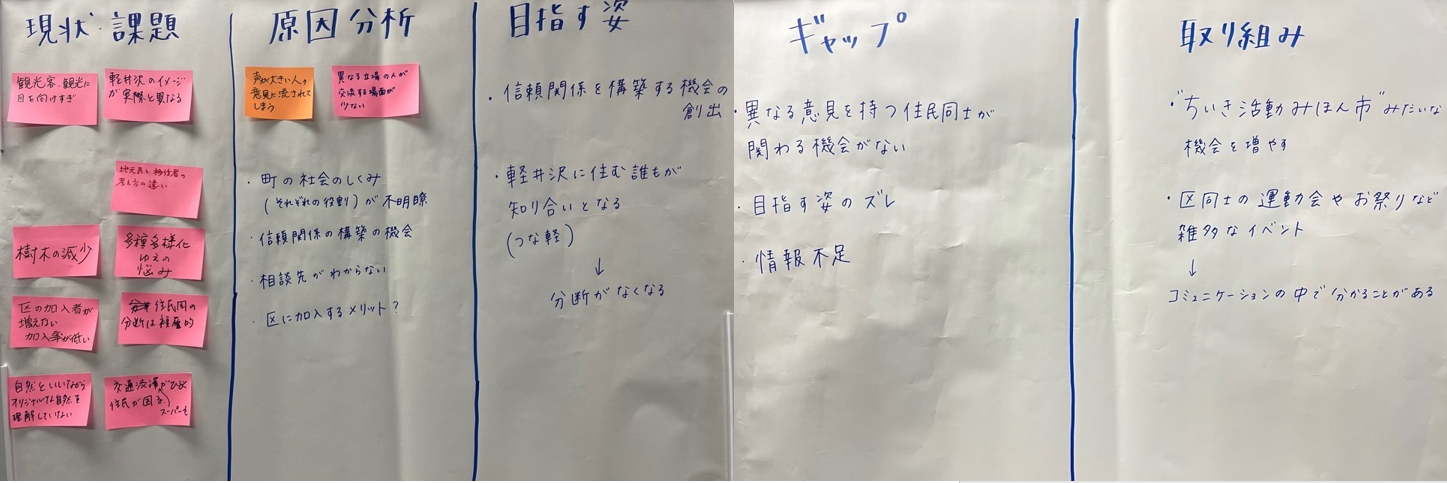 現状・課題
観光客、観光に
目を向けすぎ
軽井沢のイメージ
が実際と異なる
地元民と移住者の
考え方の違い
樹木の減少
多種多様化
ゆえの
悩み
区の加入者が
増えない
加入率が低い
住民間の
分断は複層的
自然といいながら
オリジナルな自然を
理解していない
交通渋滞がひどく
住民が困る
スーパーも
原因分析
声が大きい人の
意見に流されて
しまう
異なる立場の人が
交流する場面が
少ない
・町の社会のしくみ
(それぞれの役割)が不明瞭
・信頼関係の構築の機会
・相談先がわからない
・区に加入するメリット?
目指す姿
・信頼関係を構築する機会の
創出
・軽井沢に住む誰もが
知り合いとなる
(つな軽)
↓
分断がなくなる
ギャップ
・異なる意見を持つ住民同士が
関わる機会がない
・目指す姿のズレ
・情報不足
取り組み
・"ちいき活動みほん市"みたいな
機会を増やす
・区同士の運動会やお祭りなど
雑多なイベント
↓
コミュニケーションの中で分かることがある